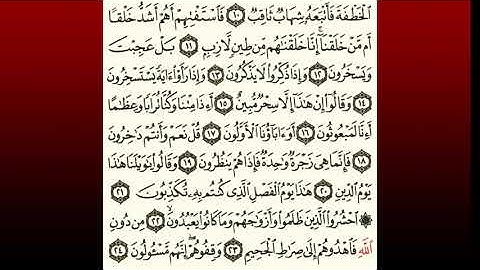 ٱلْخَطْفَةَ فَأَتْبَعَهُۥ شِهَابٌ ثَاقِبٌ ١٠ فَٱسْتَفْتِهِمْ أَهُمْ أَشَدُّ خَلْقًا
أَم مَّنْ خَلَقْنَآ إِنَّا خَلَقْنَٰهُم مِّن طِينٍ لَّازِبٍۭ ١١ بَلْ عَجِبْتَ
وَيَسْخَرُونَ ١٢ وَإِذَا ذُكِّرُوا۟ لَا يَذْكُرُونَ ١٣ وَإِذَا رَأَوْا۟ ءَايَةً يَسْتَسْخِرُونَ
١٤ وَقَالُوٓا۟ إِنْ هَٰذَآ إِلَّا سِحْرٌ مُّبِينٌ ١٥ أَءِذَا مِتْنَا وَكُنَّا تُرَابًا وَعِظَٰمًا
أَءِنَّا لَمَبْعُوثُونَ ١٦ أَوَءَابَآؤُنَا ٱلْأَوَّلُونَ ١٧ قُلْ نَعَمْ وَأَنتُمْ دَٰخِرُونَ
١٨ فَإِنَّمَا هِىَ زَجْرَةٌ وَٰحِدَةٌ فَإِذَا هُمْ يَنظُرُونَ ١٩ وَقَالُوا۟ يَٰوَيْلَنَا هَٰذَا
يَوْمُ ٱلدِّينِ ٢٠ هَٰذَا يَوْمُ ٱلْفَصْلِ ٱلَّذِى كُنتُم بِهِۦ تُكَذِّبُونَ ٢١
۞ ٱحْشُرُوا۟ ٱلَّذِينَ ظَلَمُوا۟ وَأَزْوَٰجَهُمْ وَمَا كَانُوا۟ يَعْبُدُونَ ٢٢ مِن دُونِ
ٱللَّهِ فَٱهْدُوهُمْ إِلَىٰ صِرَٰطِ ٱلْجَحِيمِ ٢٣ وَقِفُوهُمْ إِنَّهُم مَّسْـُٔولُونَ ٢٤